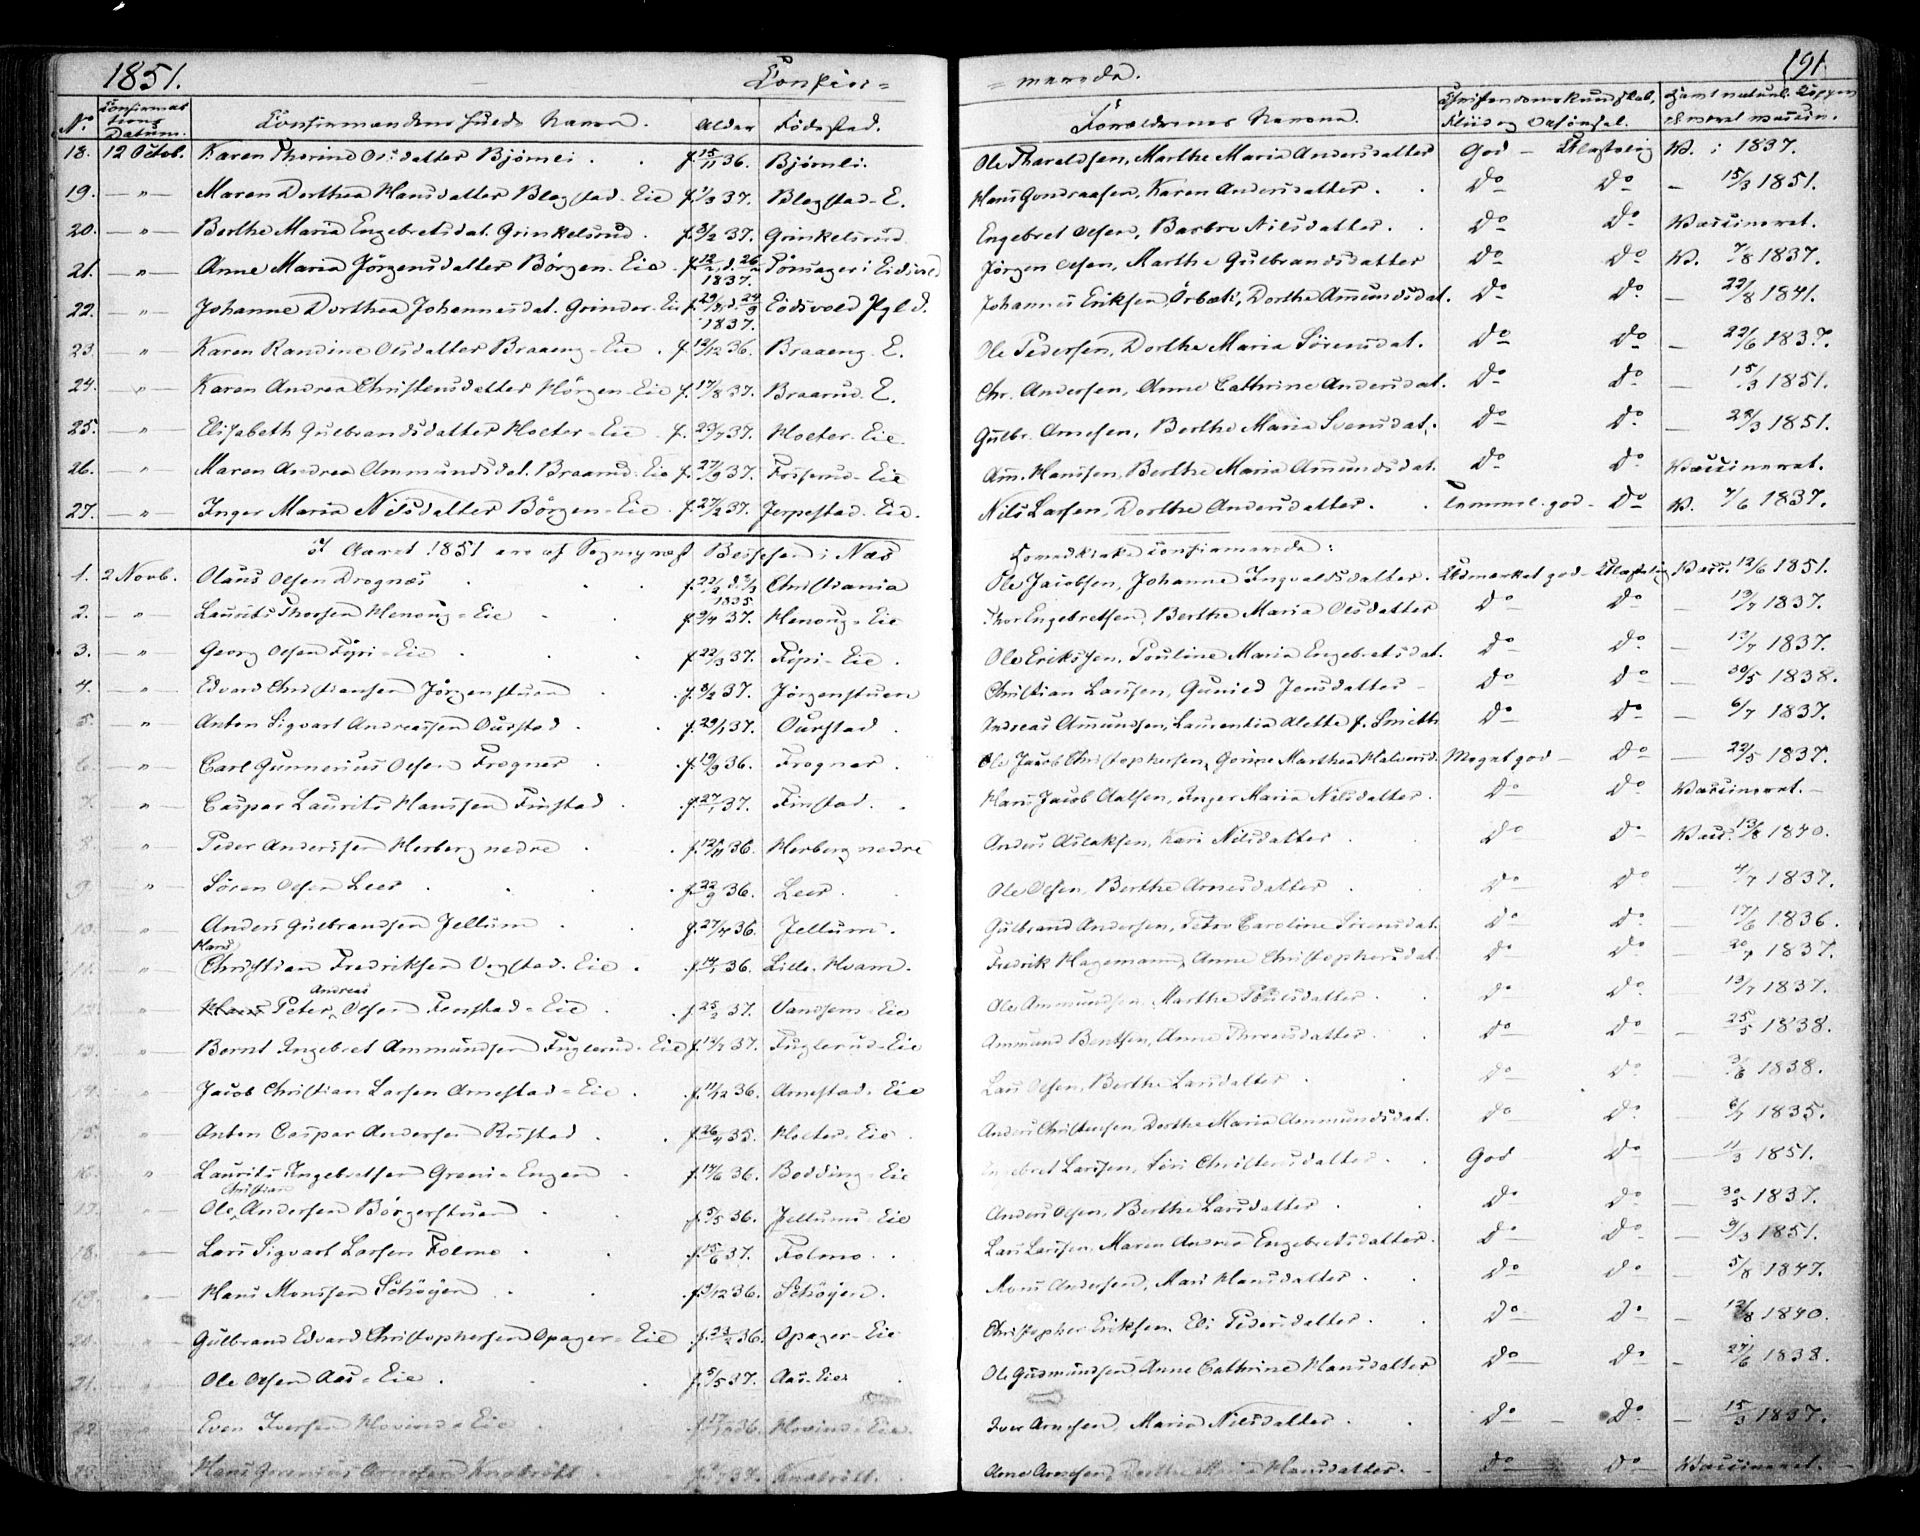 1851. Confir=
= merede. 191.
No. Confirmations Datum. Confirmandens fulde Navn. Alder Fødested. Forældrenes Navne. Christendomskundskab, Flid og Opførsel.
18. 12 Octob. Karen Olsdatter Bjørnli. f. 15/11 36. Bjørnli. Ole Tharaldsen, Marthe Maria Andersdatter God V. 1837.
19. — " — Maren Dorthea Hansdatter Blegstad-Eie f. 1/3 37. Blegstad-E. Hans Gundersen, Karen Andersdatter. Do Do — 15/3 1851.
20. — " — Berthe Maria Engebretsdat. Grinkelsrud. Grinkelsrud. Engebret Olsen, Barbro Nilsdatter. Do Do Vaccineret.
21. — " — Anne Maria Jørgensdatter Børgen-Eie 1837. Jørgen Olsen, Marthe Gulbrandsdatter Do Do V. 7/8 1837.
22. — " — Johanne Dorthea Johannesdat. Grinder-Eie 1837. Eidsvold Pgld. Johannes Eriksen, Dorthe Amundsdat. Do Do — 22/8 1841.
23. — " — Karen Randine Olsdatter Braaeng-Eie. f. 12/12 36. Braaeng-E. Ole Pedersen, Dorthe Maria Sørensdat. Do Do — 22/6 1837.
24. — " — Karen Andrea Christensdatter Hørgen-Eie f. 17/8 37. Braarud. E. Chr. Andersen, Anne Cathrine Andersdat. Do Do — 15/3 1851.
25. — " — Elisabeth Gulbrandsdatter Hoeter-Eie. f. 23/7 37. Hoeter-Eie. Gulbr. Arnesen, Berthe Maria Svensdat. Do Do — 1851.
26. — " — Maren Andrea Ammundsdat. Braarud-Eie f. 27/9 37. Eie Am. Hansen, Berthe Maria Amundsdat. Do Do Vaccineret.
27. — " — Inger Maria Nilsdatter Børgen-Eie f. 27/2 37. Jerpestad-Eie. Nils Larsen, Dorthe Andersdatter. Temmel. god — Do V. 7/6 1837.
I Aaret 1851 ere af Sognepræst i Næs confirmerede:
1. 2 Novb. Olaus Olsen Drognæs 1835 Christiania Ole Jacobsen, Johanne Ingvaldsdatter. Udmærket god Vacc. 1851.
2. — " — Laurits Thorsen Henoug-Eie 37. Henoug-Eie Thor Engebretsen, Berthe Maria Olsdatter Do Do — 13/7 1837.
3. — " — Georg Olsen Føsi-Eie f. 22/3 37. Føsi-Eie. Ole Eriksen, Pauline Maria Engebretsdat. Do Do — 13/7 1837.
4. — " — Edvard Christiansen Jørgenstuen 37. Jørgenstuen Christian Larsen, Gunild Jensdatter Do Do — 30/5 1838.
5. — " — Anton Sigvart Andreassen Ourstad f. 29/1 37. Ourstad. Andreas Amundsen, Laurentia Alette f. Smith Do Do — 6/7 1837.
6. — " — Carl Gunnerius Olsen Frogner f. 19/9 36. Frogner. Ole Jacob Christophersen, Marthea Meget god — Do — 22/5 1837.
7. — " — Caspar Laurits Hansen Finstad. f. 27/1 37. Finstad. Hans Jacob Inger Maria Nilsdatter Do Do Vaccineret.
8. " — Peder Andersen Herberg nedre. 36. Herberg nedre Anders Aslaksen, Kari Nilsdatter Do Do Vacc. 13/8 1840.
9. — " — Søren Olsen Leer f. 22/9 36. Leer. Ole Olsen, Berthe Arnesdatter Do Do 4/7 1837.
10. " — Anders Gulbrandsen Jellum f. 27/4 36. Jellum. Gulbrand Andersen, Petra Caroline Sørensdat. Do Do — 17/6 1836.
11. " — Hans Christian Fredriksen Vegstad-Eie. 36. Lille-Hvam. Fredrik Hagemann, Anne Christophersdat. Do Do — 1837.
12. " — Hans Peter Andreas Olsen Fenstad-Eie f. 25/2 37. Eie Ole Ammundsen, Marthe Poulsdatter Do Do — 13/7 1837.
13. " — Bernt Ingebret Ammundsen Fuglerud-Eie 37. Fuglerud-Eie Ammund Bentsen, Anne Do Do — 25/5 1838.
14. " — Jacob Christian Larsen Arnestad-Eie. f. 11/12 36. Arnestad-Eie Lars Olsen, Berthe Larsdatter Do Do — 1838.
15. " — Anton Caspar Andersen Rustad. 35. Hoeter-Eie Anders Christensen, Dorthe Maria Ammundsdat. Do Do — 6/7 1835.
16. " — Laurits Ingebretsen Greni-Engen. 36. Bodding-Eie Larsen, Siri Christensdatter God Do — 11/3 1851.
17. " — Ole Christian Andersen Børgerstuen f. 5/5 36. Jellum-Eie Anders Olsen, Berthe Larsdatter Do Do — 30/5 1837.
18. " — Lars Sigvart Larsen Folmo f. 15/6 37. Folmo. Lars Larsen, Maren Andrea Engebretsdatter. Do Do — 9/3 1851.
19. " — Hans Monsen Schøyen 36. Schøyen. Mons Andersen, Mari Hansdatter Do Do — 5/8 1847.
20. " — Gulbrand Edvard Christophersen Opager-Eie 36. Opager-Eie Christopher Eriksen, Eli Pedersdatter. Do Do 1840.
21. " — Ole Olsen Aas-Eie. f. 5/5 37. Aas-Eie Ole Gudmundsen, Anne Cathrine Hansdatter Do Do — 27/6 1838.
22. " — Even Iversen Hovind-Eie 36. Hovind-Eie. Iver Arnesen, Maria Nilsdatter. Do — Do — 15/3 1837.
23. " — Hans Arnesen 37. Arne Arnesen, Hansdatter. Do Do Vaccineret.